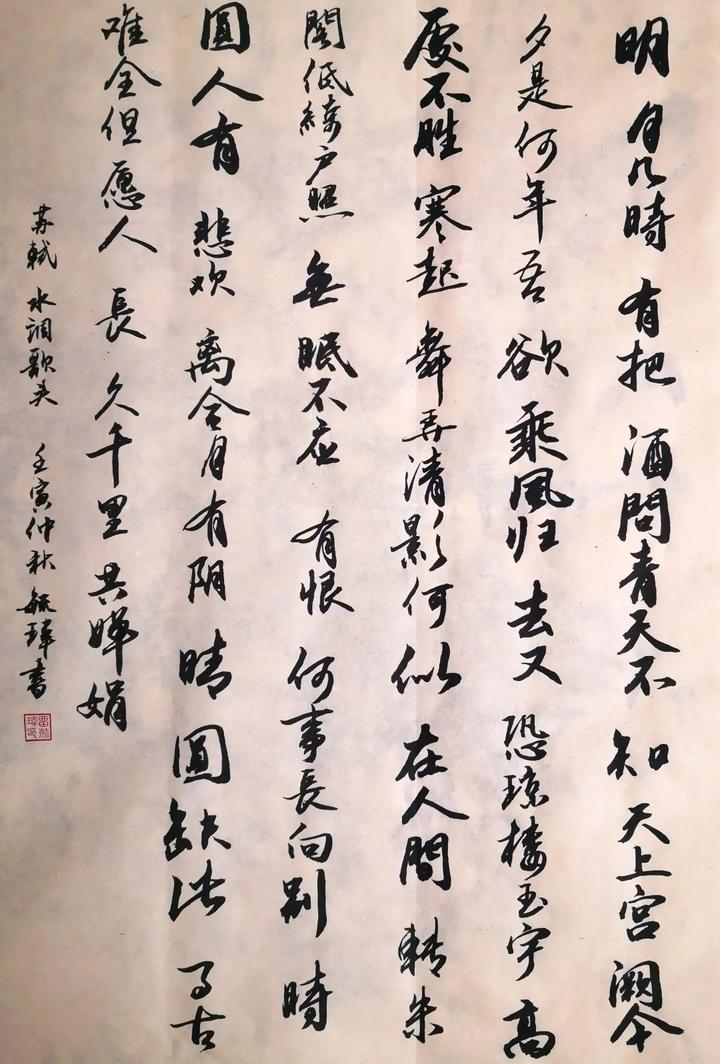 明月几時有把酒問青天不知天上宫阙今
夕是何年吾欲乘风归去又恐琼楼玉宇高
處不胜寒起舞弄清影何似在人間轉朱
閣低綺户照無眠不应有恨何事長向别時
圓人有悲欢离合月有阴晴圆缺此事古
难全但愿人長久千里共婵娟
苏轼水调歌头壬寅仲秋毓璋書